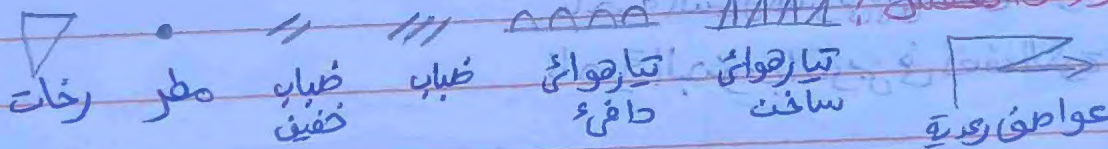 عواصف رعدية تيار هوائي ساخن تيار هوائي دافئ ضباب ضباب خفيف مطر رخات